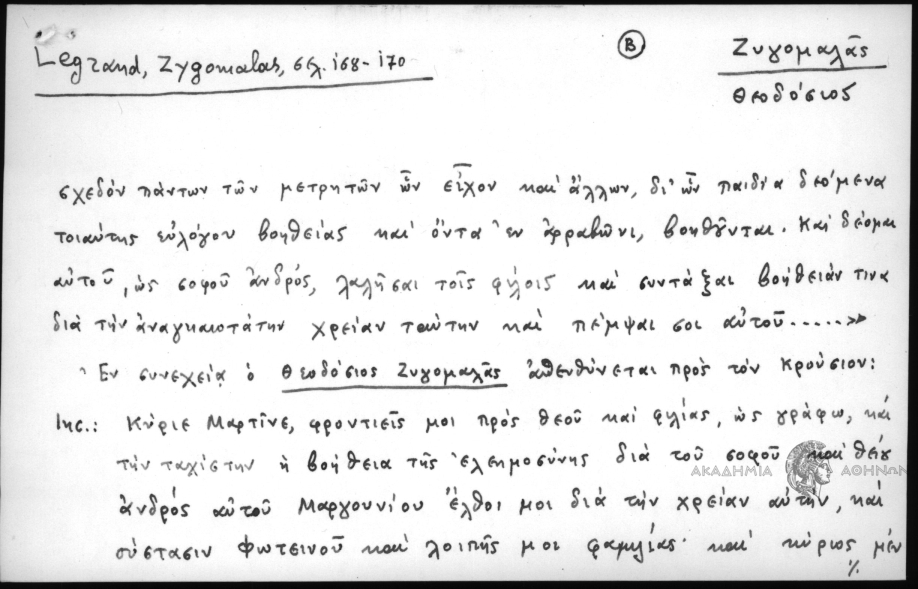 Legrand, Zygomalas, σελ. 168-170
Β
Ζυγομαλᾶς
Θεοδόσιος
σχεδόν πάντων τῶν μετρητῶν ὧν εἶχον καί ἄλλων, δι' ὧν παιδία δεόμενα
τοιαύτης εὐλόγου βοηθείας καί ὄντα ἐν ἀρραβῶνι, βοηθοῦνται. Καί δέομαι
αὐτοῦ, ὡς σοφοῦ ἀνδρός, λαλῆσαι τοῖς φίλοις καί συντάξαι βοήθειάν τινα
διά τήν ἀναγκαιοτάτην χρείαν ταύτην καί πέμψαι σοι αὐτοῦ.....»
Ἐν συνεχείᾳ ὁ Θεοδόσιος Ζυγομαλᾶς ἀπευθύνεται πρός τόν Κρούσιον:
Inc.: Κύριε Μαρτῖνε, φροντιεῖς μοι πρός θεοῦ καί φιλίας, ὡς γράφω, καί
τήν ταχίστην ἡ βοήθεια τῆς ἐλεημοσύνης διά τοῦ σοφοῦ καί θείου
ἀνδρός αὐτοῦ Μαργουνίου ἔλθοι μοι διά τήν χρείαν αὐτήν, καί
σύστασιν Φωτεινοῦ καί λοιπῆς μοι φαμιλίας· καί κύριος μέν
%
ΑΚΑΔΗΜΙΑ ΑΘΗΝΩΝ